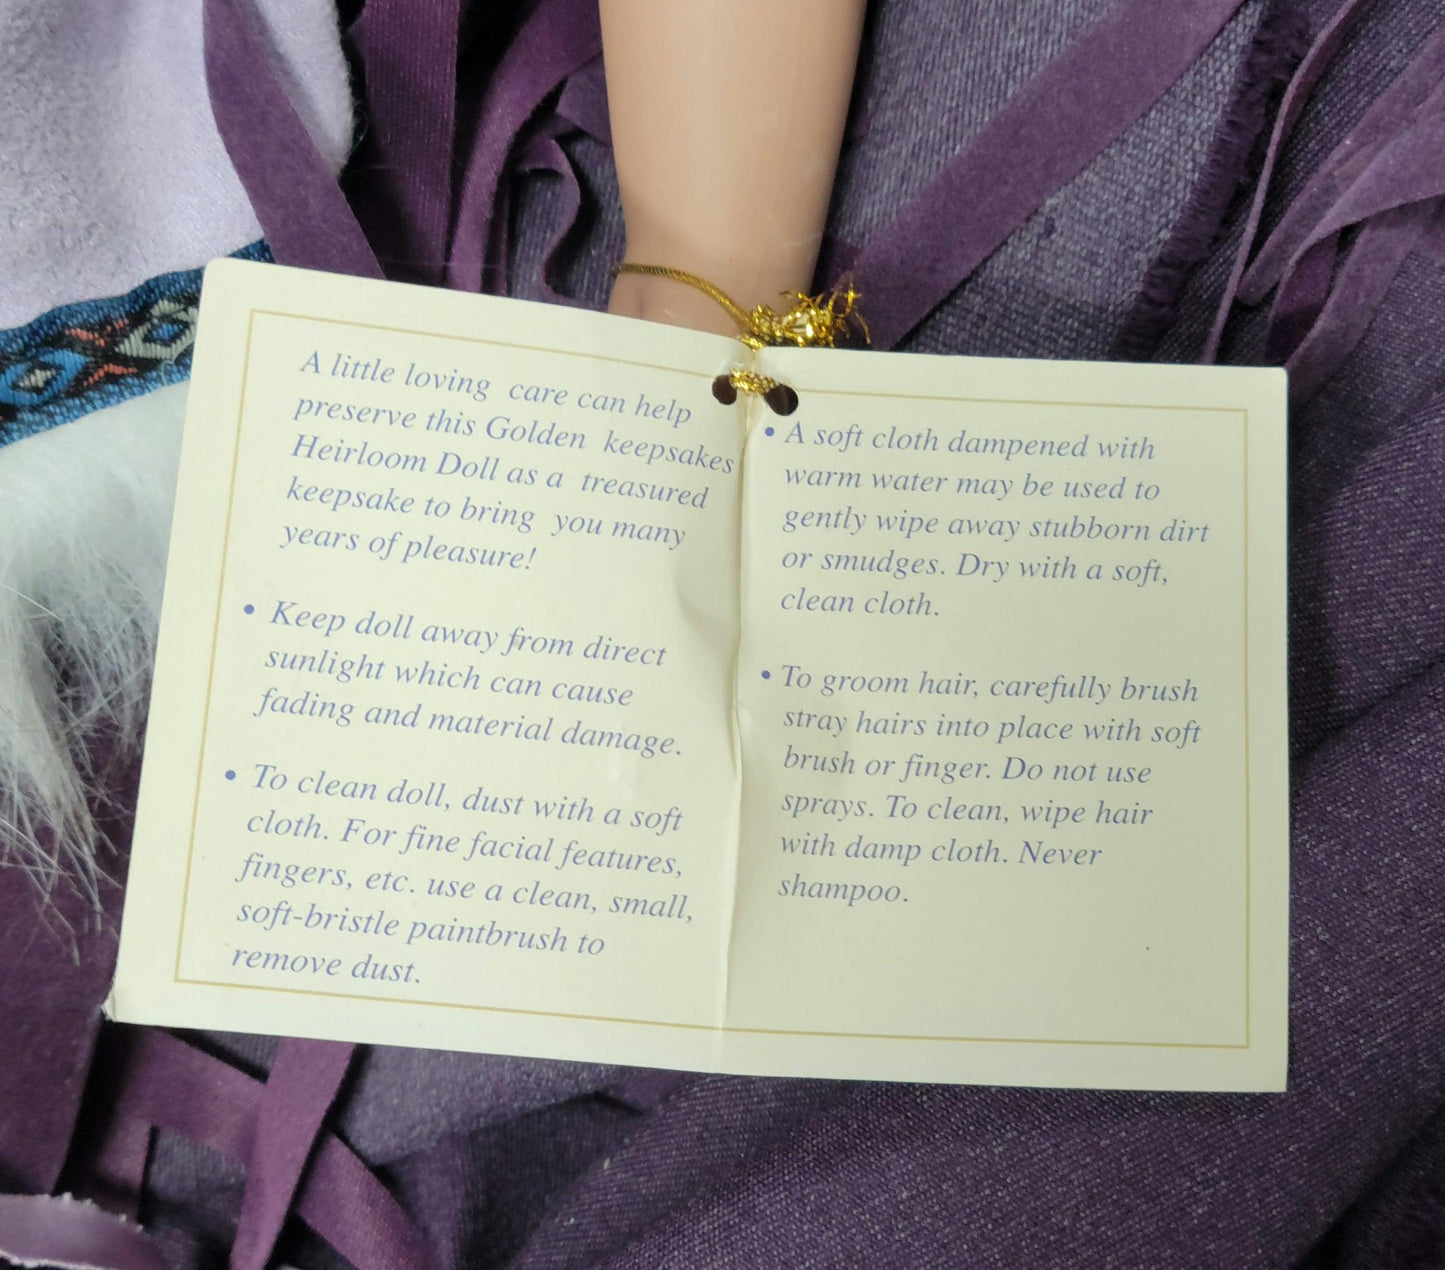 A little loving care can help
preserve this Golden keepsakes
Heirloom Doll as a treasured
keepsake to bring you many
years of pleasure!
• Keep doll away from direct
sunlight which can cause
fading and material damage.
• To clean doll, dust with a soft
cloth. For fine facial features,
fingers, etc. use a clean, small,
soft-bristle paintbrush to
remove dust.
• A soft cloth dampened with
warm water may be used to
gently wipe away stubborn dirt
or smudges. Dry with a soft,
clean cloth.
• To groom hair, carefully brush
stray hairs into place with soft
brush or finger. Do not use
sprays. To clean, wipe hair
with damp cloth. Never
shampoo.